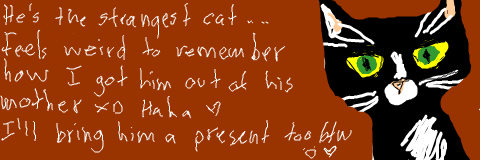 He's the strangest cat...
feels weird to remember
how I got him out of his
mother XD Haha ♡
I'll bring him a present too btw